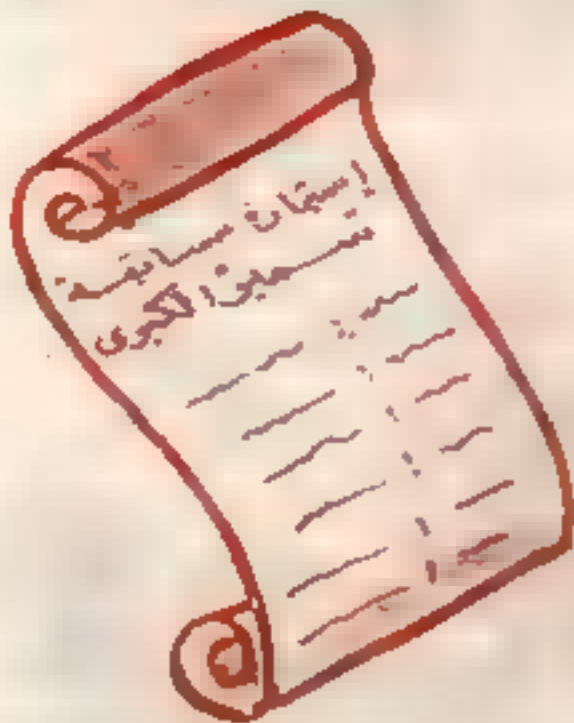 إستمارة مسابقة
سمير الكبرى